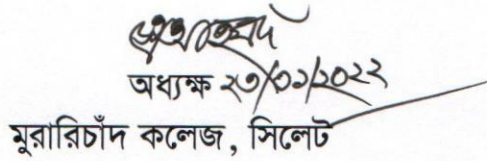 অধ্যক্ষ ২৩/০১/২০২২
মুরারিচাঁদ কলেজ, সিলেট